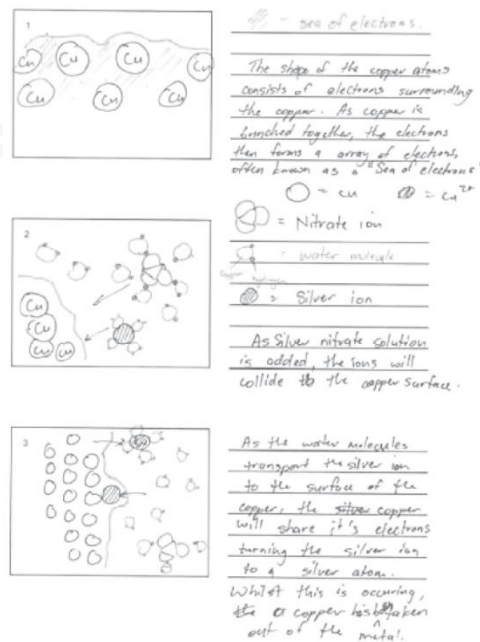 1
- sea of electrons.
Cu Cu Cu Cu
Cu Cu Cu
The shape of the copper atoms
consists of electrons surrounding
the copper. As copper is
bunched together, the electrons
then forms a array of electrons,
often known as a "Sea of electrons"
= Cu = Cu²⁺
= Nitrate ion
2
- water molecule
= Silver ion
Cu
Cu
Cu
Cu Cu
As Silver nitrate solution
is added, the ions will
collide to the copper surface.
3
As the water molecules
transport the silver ion
to the surface of the
copper, the silver copper
will share it's electrons
turning the silver ion
to a silver atom.
Whilst this is occuring,
a copper taken
out of the metal.